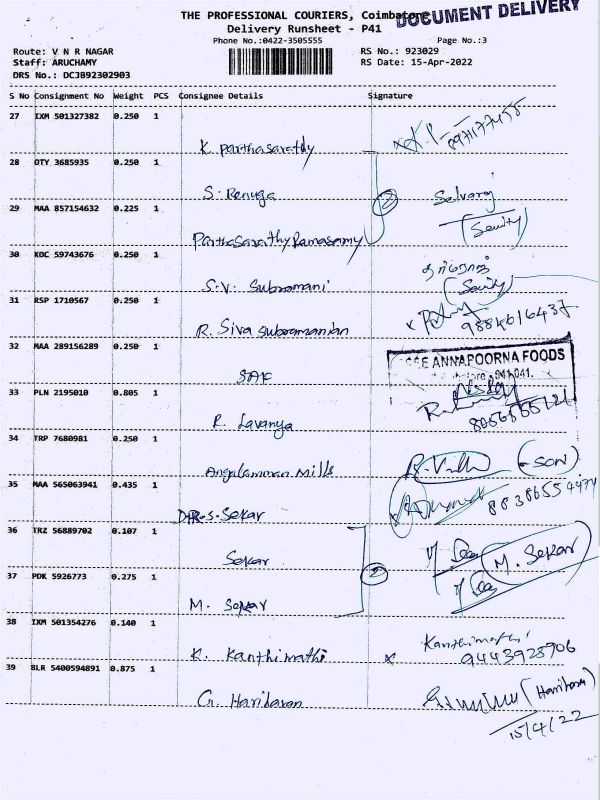 THE PROFESSIONAL COURIERS, Coimbatore
DOCUMENT DELIVERY
Delivery Runsheet - P41
Phone No.:0422-3505555
Page No.:3
Route: V N R NAGAR
RS No.: 923029
Staff: ARUCHAMY
RS Date: 15-Apr-2022
DRS No.: DCJB92302903
S No Consignment No Weight PCS Consignee Details Signature
27 IXM 501327382 0.250 1
K. Parthasarathy
28 OTY 3685935 0.250 1
S. Renuga
2
Selvaraj
29 MAA 857154632 0.225 1
Parthasarathy Ramasamy
30 KOC 59743676 0.250 1
S.V. Subramani
31 RSP 1710567 0.250 1
R. Siva subramanian
9884616437
32 MAA 289156289 0.250 1
ANNAPOORNA FOODS
SAF
33 PLN 2195010 0.805 1
R. Lavanya
34 TRP 7680981 0.250 1
Angalamman Mills
(SON)
35 MAA 565063941 0.435 1
DR. S. Sekar
36 TRZ 56889702 0.107 1
Sekar
2
(M. Sekar)
37 PDK 5926773 0.275 1
M. Sekar
38 IXM 501354276 0.140 1
K. Kanthimathi
x Kanthimathi
9443928906
39 BLR 5400594891 0.875 1
G. Hariharan
(Hariharan)
15/4/22